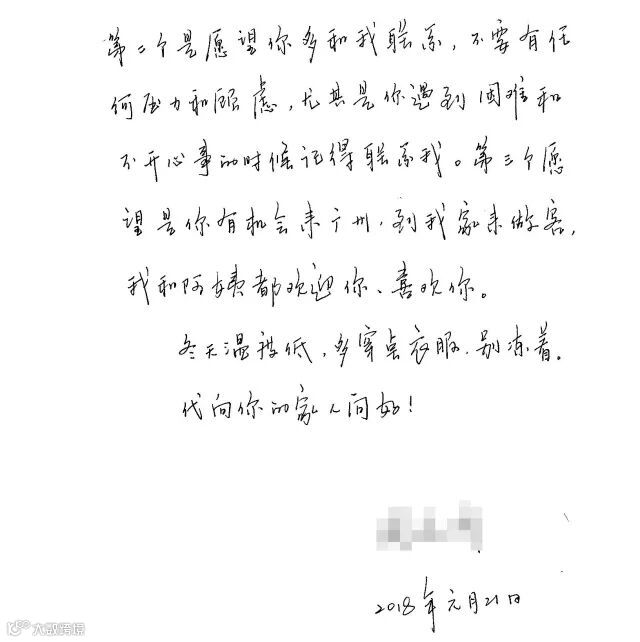 第二个是愿望你多和我联系，不要有任
何压力和顾虑，尤其是你遇到困难和
不开心事的时候记得联系我。第三个愿
望是你有机会来广州，到我家来做客，
我和阿姨都欢迎你、喜欢你。
冬天温度低，多穿点衣服，别冻着。
代向你的家人问好！
2018年元月21日
大数跨境